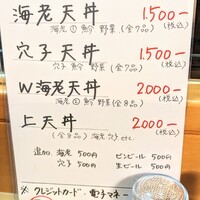 海老天丼 1.500-
海老① 魚介 野菜 (全7品) (税込)
穴子天丼 1.500-
穴子 魚介 野菜 (全7品) (税込)
W海老天丼 2000-
海老② 魚介 野菜 (全8品) (税込)
上天丼 2.000-
(全9品) 海老.穴子.etc. (税込)
追加 海老 500円 ビンビール 500円
穴子 500円 生ビール 500円
※ クレジットカード・電子マネー